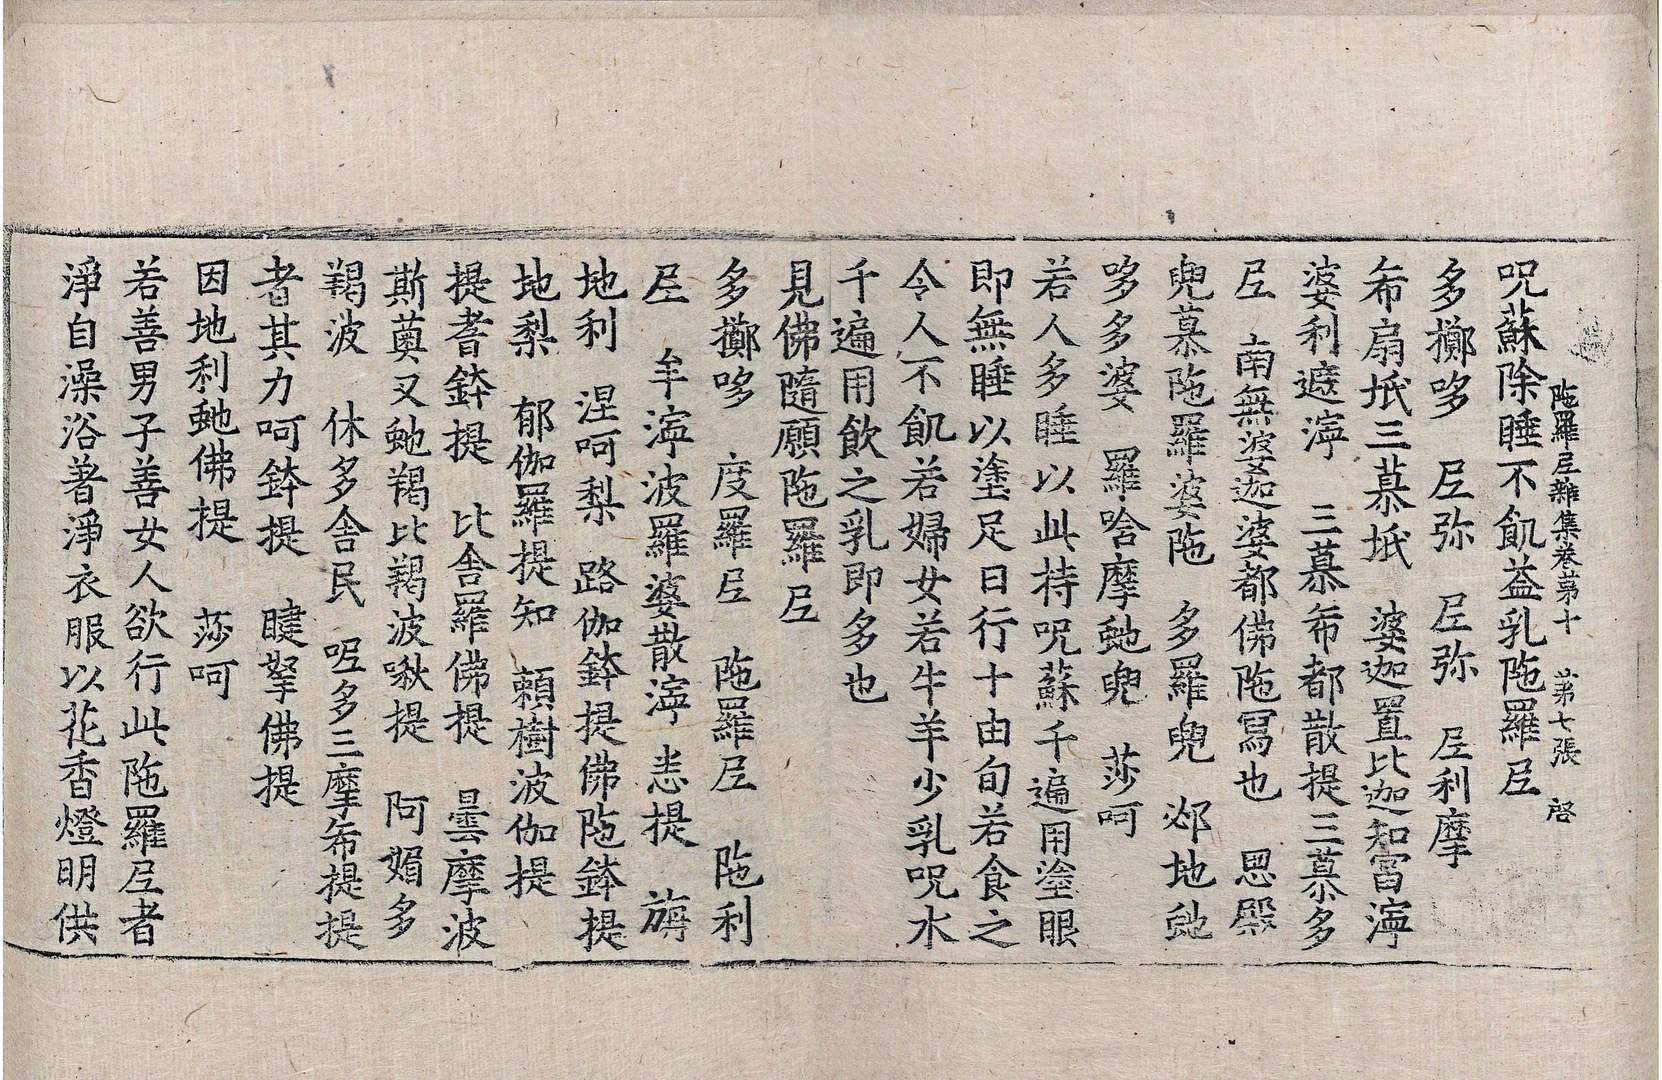 陁羅尼雜集卷苐十　苐七張　啓
呪蘇除睡不飢益乳陁羅尼
多擲哆　尼弥　尼弥　尼利摩
希扇坁三慕坁　婆迦置比迦知富濘
婆利遮濘　三慕希都散提三慕多
尼　南無婆迦婆都佛陁寫也　思殿
兜慕陁羅婆陁　多羅兜　䣛地虵
哆多婆　羅唅摩虵兜　莎呵
若人多睡以此持呪蘇千遍用塗眼
即無睡以塗足日行十由旬若食之
令人不飢若婦女若牛羊少乳呪水
千遍用飲之乳即多也
見佛隨願陁羅尼
多擲哆　度羅尼　陁羅尼　陁利
尼　牟濘波羅婆散濘　恚提　旃
地利　涅呵梨　路伽鉢提佛陁鉢提
地梨　郁伽羅提知　賴樹波伽提
提耆鉢提　比舎羅佛提　曇摩波
斯薁叉虵羯比羯波啾提　阿媚多
羯波　休多舎民　呢多三摩希提提
者其力呵鉢提　睫拏佛提
因地利虵佛提　莎呵
若善男子善女人欲行此陁羅尼者
淨自澡浴著淨衣服以花香燈明供